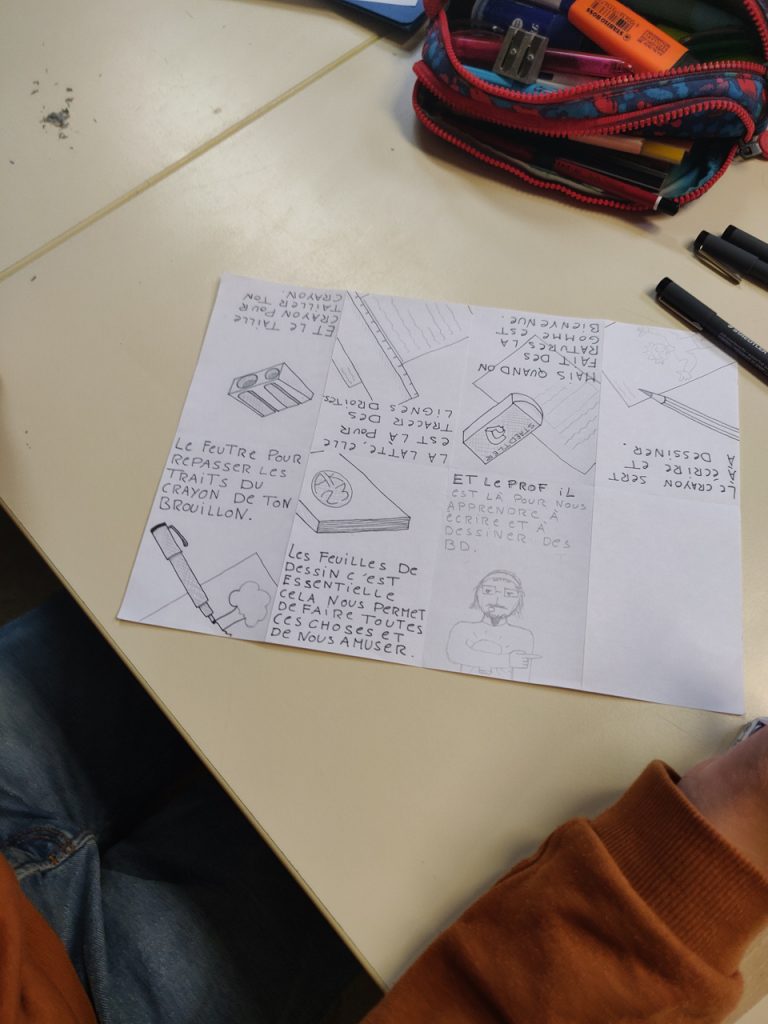 LE CRAYON SERT
À ÉCRIRE ET
À DESSINER.
MAIS QUAND ON
FAIT DES
RATURES LA
GOMME EST
BIENVENUE.
STAEDTLER
LA LATTE, ELLE
EST LÀ POUR
TRACER DES
LIGNES DROITES.
ET LE TAILLE
CRAYON POUR
TAILLER TON
CRAYON.
LE FEUTRE POUR
REPASSER LES
TRAITS DU
CRAYON DE TON
BROUILLON.
LES FEUILLES DE
DESSIN C'EST
ESSENTIELLE
CELA NOUS PERMET
DE FAIRE TOUTES
CES CHOSES ET
DE NOUS AMUSER.
ET LE PROF IL
EST LÀ POUR NOUS
APPRENDRE À
ÉCRIRE ET À
DESSINER DES
BD.
STABILO BOSS